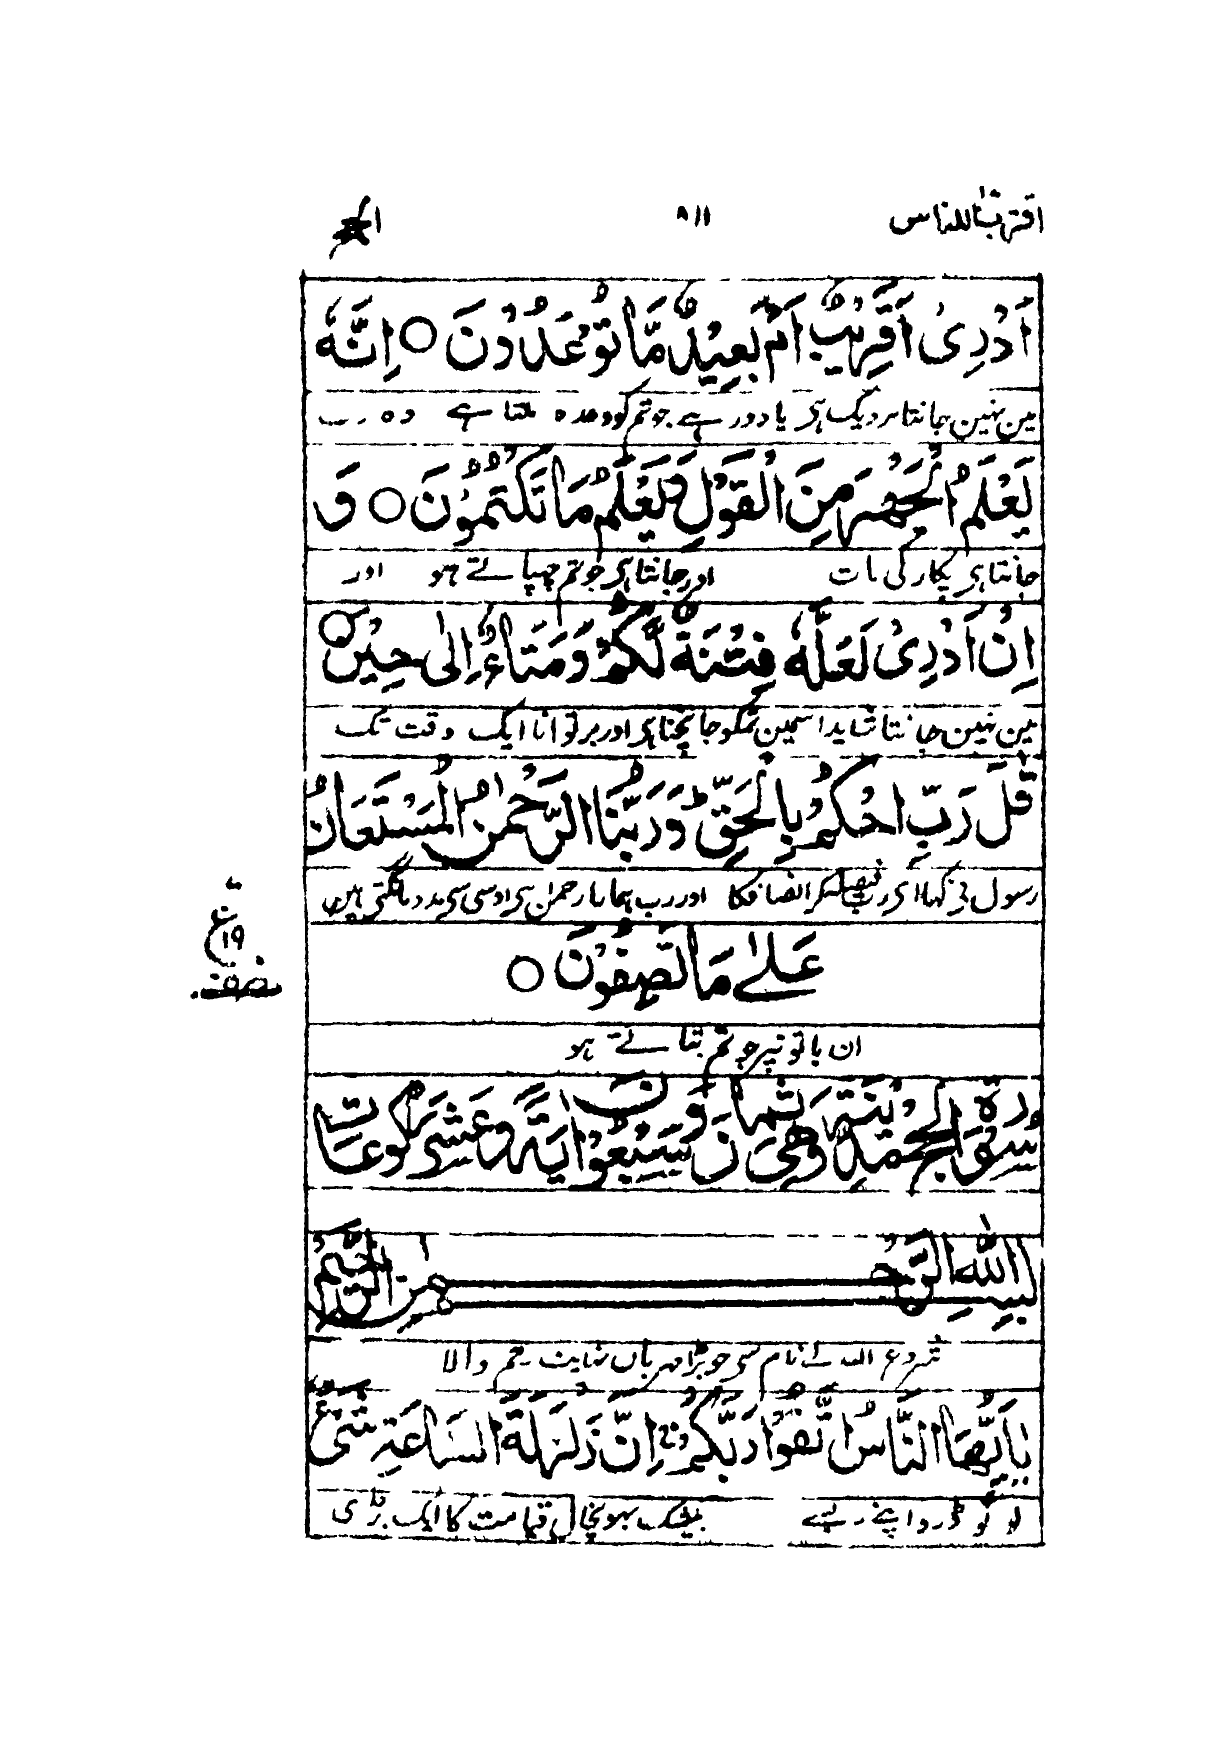 اقترب للناس ٨١١ الحج
اَدْرِىْ اَقَرِيْبٌ اَمْ بَعِيْدٌ مَّا تُوْعَدُوْنَ ○ اِنَّهٗ
مین نہین جانتا نزدیک ہی یا دور ہے جو تمکو وعدہ ملتا ہے وہ رب
يَعْلَمُ الْجَهْرَ مِنَ الْقَوْلِ وَيَعْلَمُ مَا تَكْتُمُوْنَ ○ وَ
جانتا ہی پکار کی بات اور جانتا ہی جو تم چھپاتے ہو اور
اِنْ اَدْرِىْ لَعَلَّهٗ فِتْنَةٌ لَّكُمْ وَمَتَاعٌ اِلٰى حِيْنٍ ○
مین نہین جانتا شاید اسمین تمکو جانچنا ہی اور برتوانا ایک وقت تک
قٰلَ رَبِّ احْكُمْ بِالْحَقِّ ؕ وَرَبُّنَا الرَّحْمٰنُ الْمُسْتَعَانُ
رسول نی کہا ای رب فیصلہ کر انصاف کا اور رب ہمارا رحمٰن ہی اوسی سی مدد مانگتی ہین
ع
١٩
نصف
عَلٰے مَا تَصِفُوْنَ ○
ان باتونپر جو تم بتاتے ہو
سورة الحج مدنية وهى ثمان وسبعون اية وعشر ركوعات
بسم الله الرحمن الرحيم
شروع اللہ کے نام سی جو بڑا مہربان نہایت رحم والا
يٰاَيُّهَا النَّاسُ اتَّقُوْا رَبَّكُمْ ۚ اِنَّ زَلْزَلَةَ السَّاعَةِ شَىْءٌ
لوگو ڈرو اپنے رب سے بیشک بھونچال قیامت کا ایک بڑی